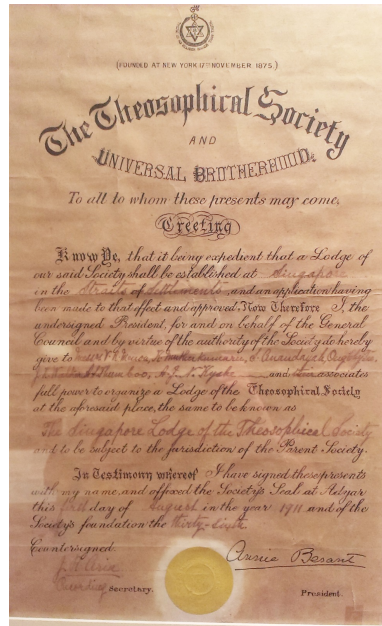 (FOUNDED AT NEW YORK 17TH NOVEMBER 1875.)
The Theosophical Society
AND
UNIVERSAL BROTHERHOOD.
To all to whom these presents may come,
Greeting
Know Ye, that it being expedient that a Lodge of
our said Society shall be established at Singapore
in the Straits Settlements, and an application having
been made to that effect and approved, Now Therefore I, the
undersigned President, for and on behalf of the General
Council and by virtue of the authority of the Society do hereby
give to
and associates
full power to organize a Lodge of the Theosophical Society
at the aforesaid place, the same to be known as
The Singapore Lodge of the Theosophical Society
and to be subject to the jurisdiction of the Parent Society.
In Testimony whereof I have signed these presents
with my name, and affixed the Society's Seal at Adyar
this first day of August in the year 1911 and of the
Society's foundation the thirty-sixth
Countersigned.
Annie Besant
Secretary.
President.